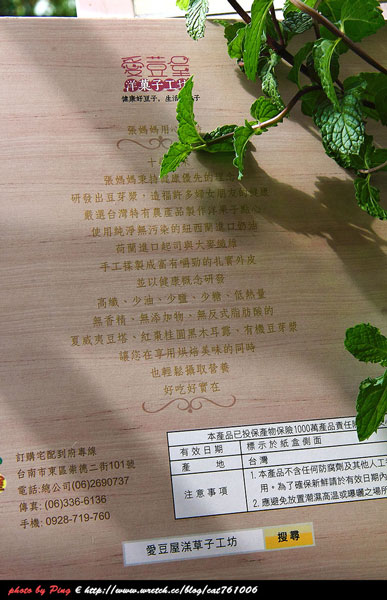 愛荳屋
洋菓子工坊
健康好豆子，生活
張媽媽用
張媽媽秉持健康優先的
研發出豆芽漿，造福許多婦女朋友的健康
嚴選台灣特有農產品製作洋菓子點心
使用純淨無污染的紐西蘭進口奶油
荷蘭進口起司與大麥纖維
手工揉製成富有嚼勁的孔實外皮
並以健康概念研發
高纖、少油、少鹽、少糖、低熱量
無香精、無添加物、無反式脂肪酸的
夏威夷豆塔、紅棗桂圓黑木耳露、有機豆芽漿
讓您在享用烘焙美味的同時
也輕鬆攝取營養
好吃好實在
訂購宅配到府專線
台南市東區崇德二街101號
電話:總公司(06)2690737
傳真: (06)336-6136
手機: 0928-719-760
本產品已投保產物保險1000萬產品責任
有效日期 標示於紙盒側面
產地 台灣
注意事項
1. 本產品不含任何防腐劑及其他人工
用。為了確保新鮮請於有效日期內
2. 應避免放置潮濕高溫或曝曬之場所
愛豆屋洋草子工坊 搜尋
photo by Ping @ http://www.wretch.cc/blog/cat761006